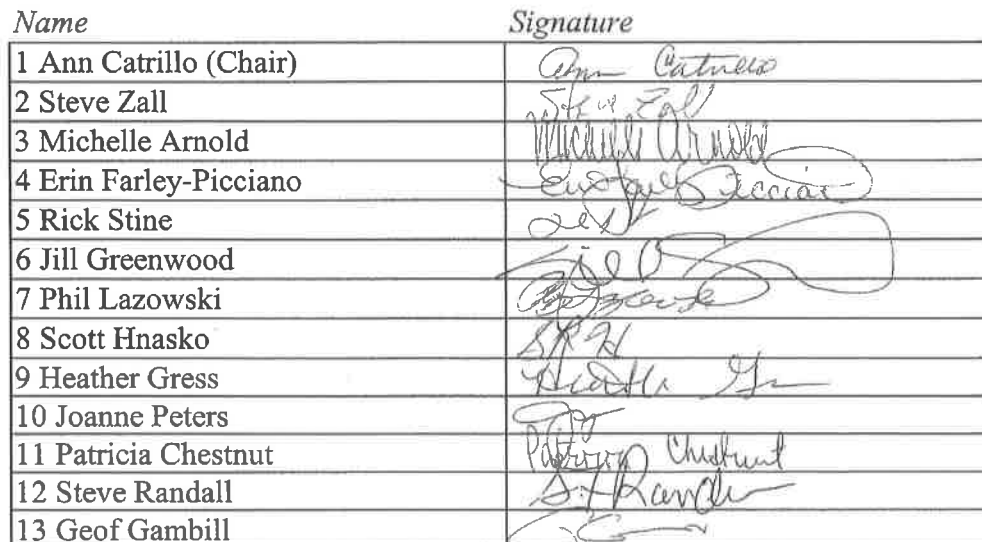 Name Signature
1 Ann Catrillo (Chair) Ann Catrillo
2 Steve Zall Steve Zall
3 Michelle Arnold Michelle Arnold
4 Erin Farley-Picciano
5 Rick Stine
6 Jill Greenwood
7 Phil Lazowski
8 Scott Hnasko SRH
9 Heather Gress Heather
10 Joanne Peters
11 Patricia Chestnut Patricia Chestnut
12 Steve Randall
13 Geof Gambill